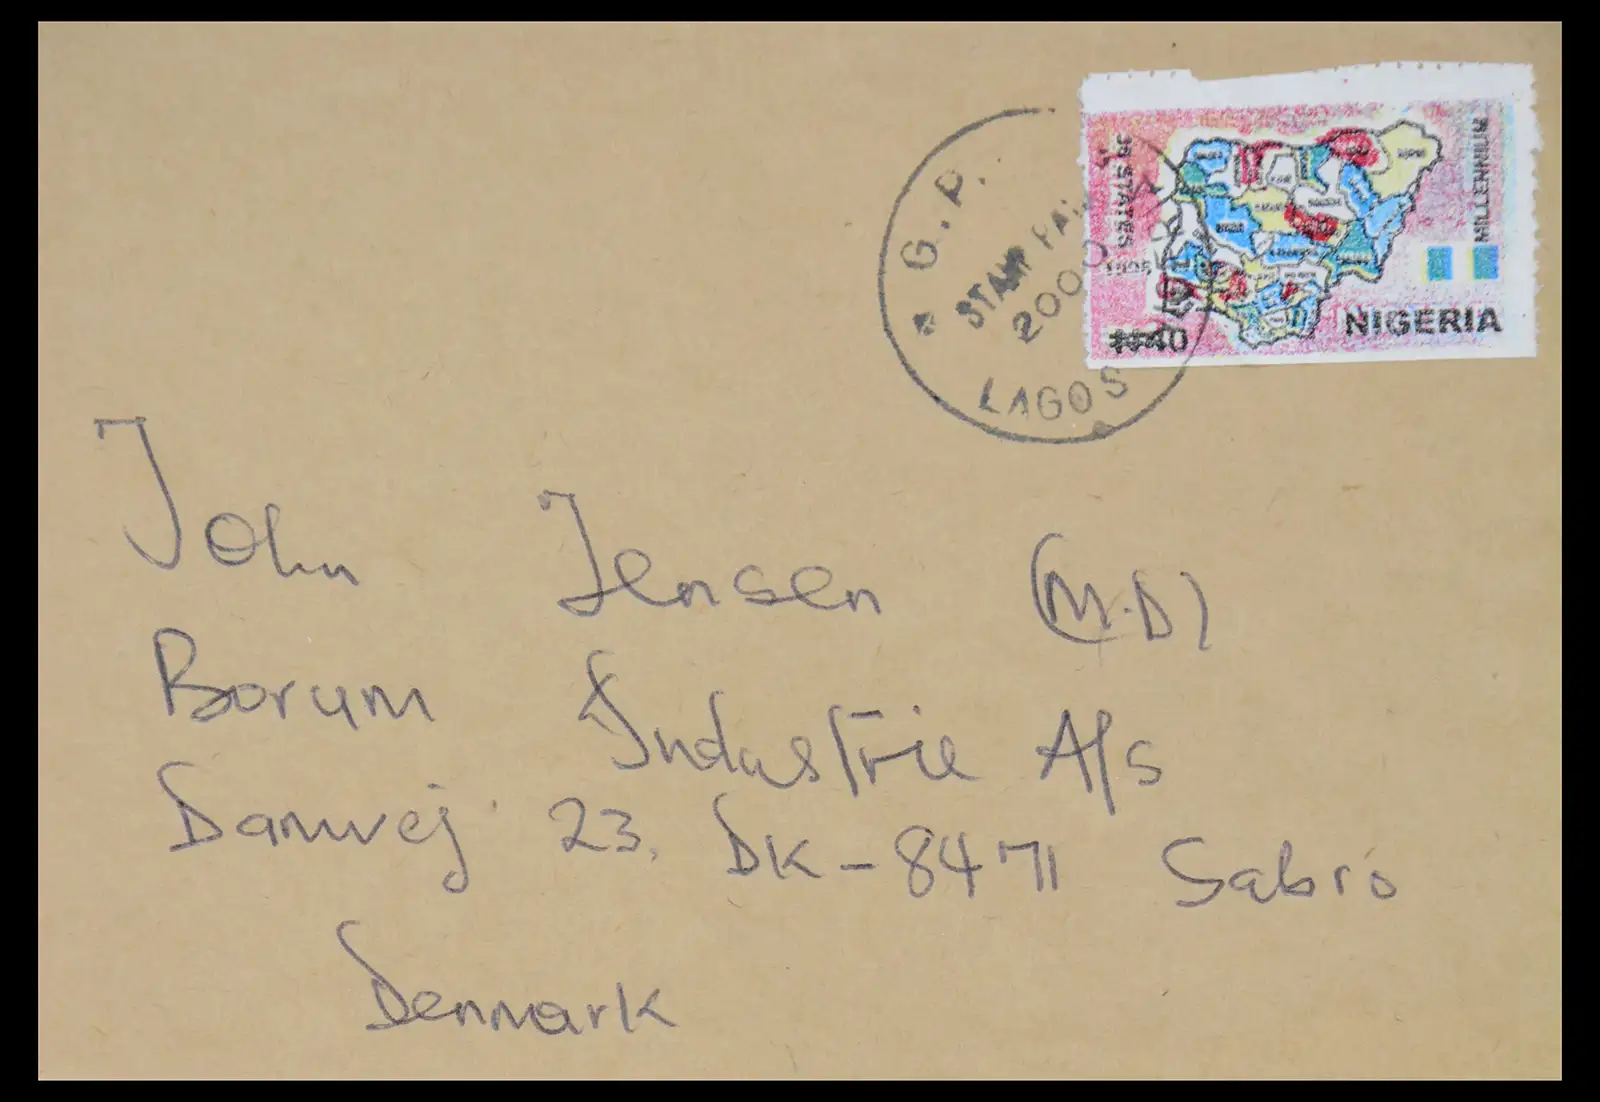 36 STATES
MILLENNIUM
NIGERIA
₦40
G.P.
STAMP
2000
LAGOS
John Jensen (M.D)
Borum Industrie A/S
Danmvej 23, DK-8471 Sabro
Denmark